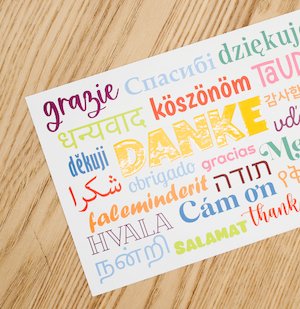 grazie Спасибі dziękuję
धन्यवाद köszönöm
děkuji DANKE 감사합
شكرا obrigado gracias
faleminderit תודה
HVALA Cám ơn
நன்றி SALAMAT thank